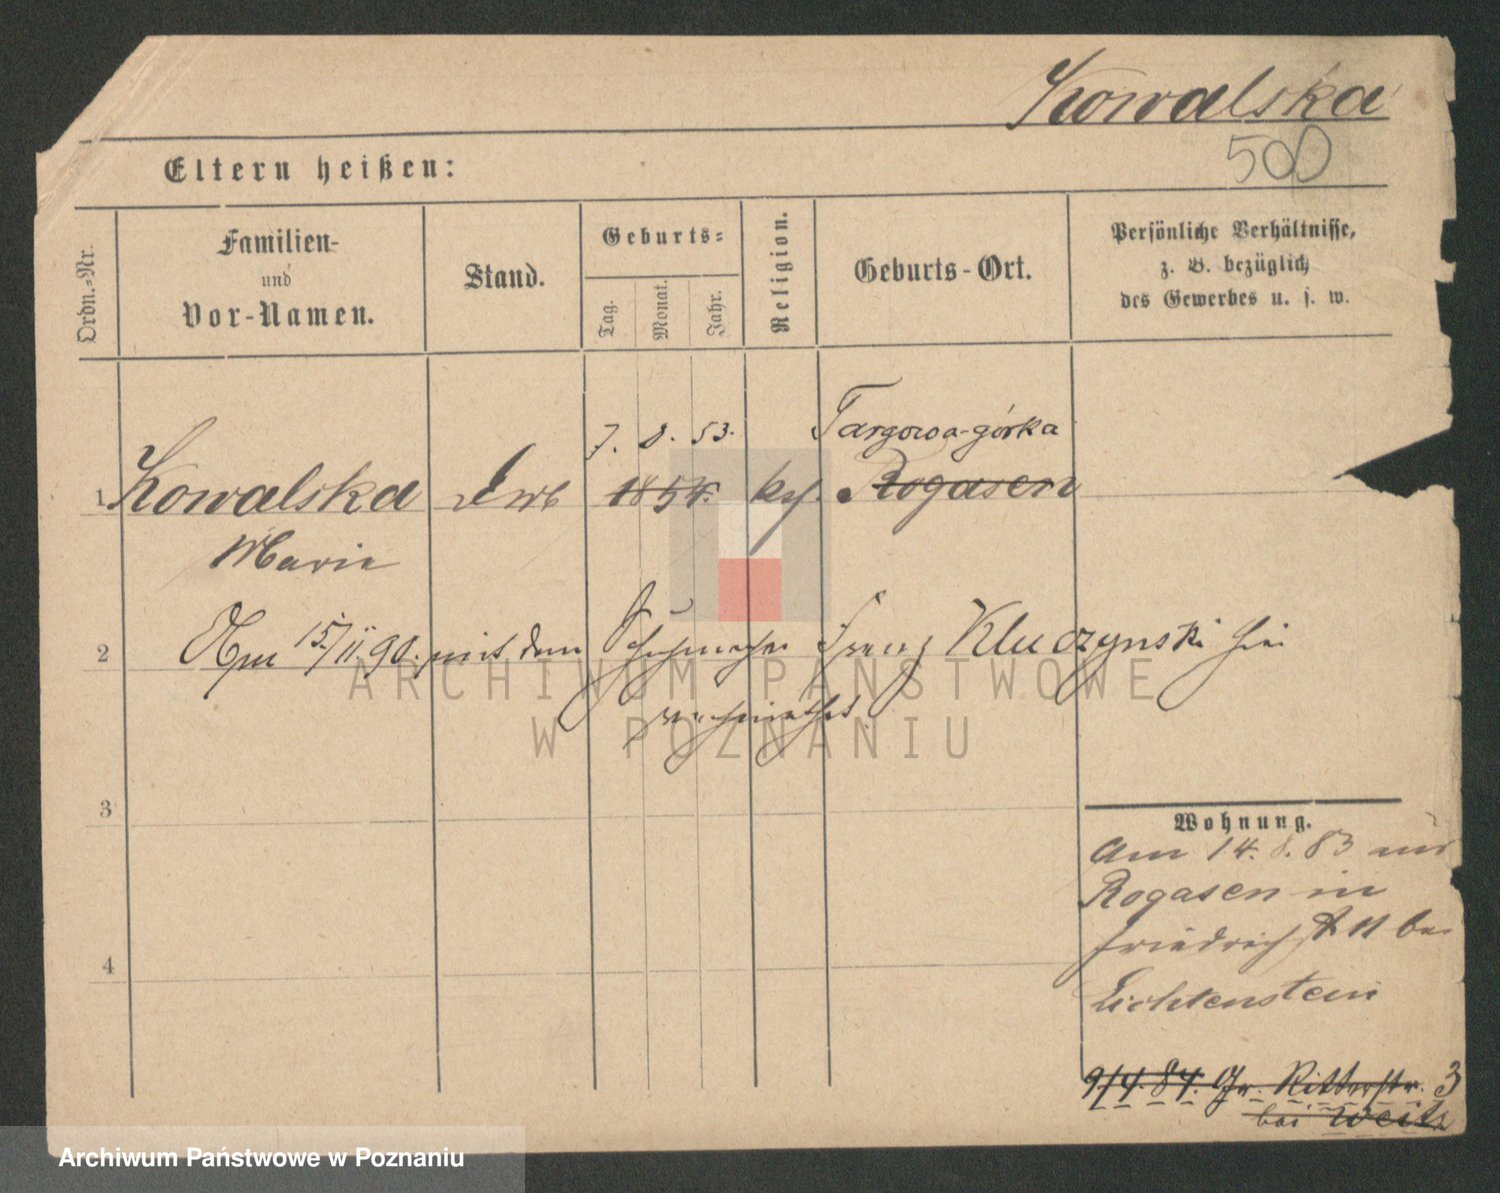 Kowalska
500
Eltern heißen:
Ordn.-Nr.
Familien-
und
Vor-Namen.
Stand.
Geburts-
Tag.
Monat.
Jahr.
Religion.
Geburts-Ort.
Persönliche Verhältnisse,
z. B. bezüglich
des Gewerbes u. s. w.
7. 8. 53. Targowa-górka
1 Kowalska 1854. Rogasen
Marie
2 Am 15/11.90. mit dem Schuhmacher Franz Kluczynski hier
verheirathet
3
4
Wohnung.
Am 14.8.83 aus
Rogasen in
Friedrichst 11 bei
Lichtenstein
9/4.84. Gr. Ritterstr. 3
bei Weitz
ARCHIWUM PAŃSTWOWE
W POZNANIU
Archiwum Państwowe w Poznaniu